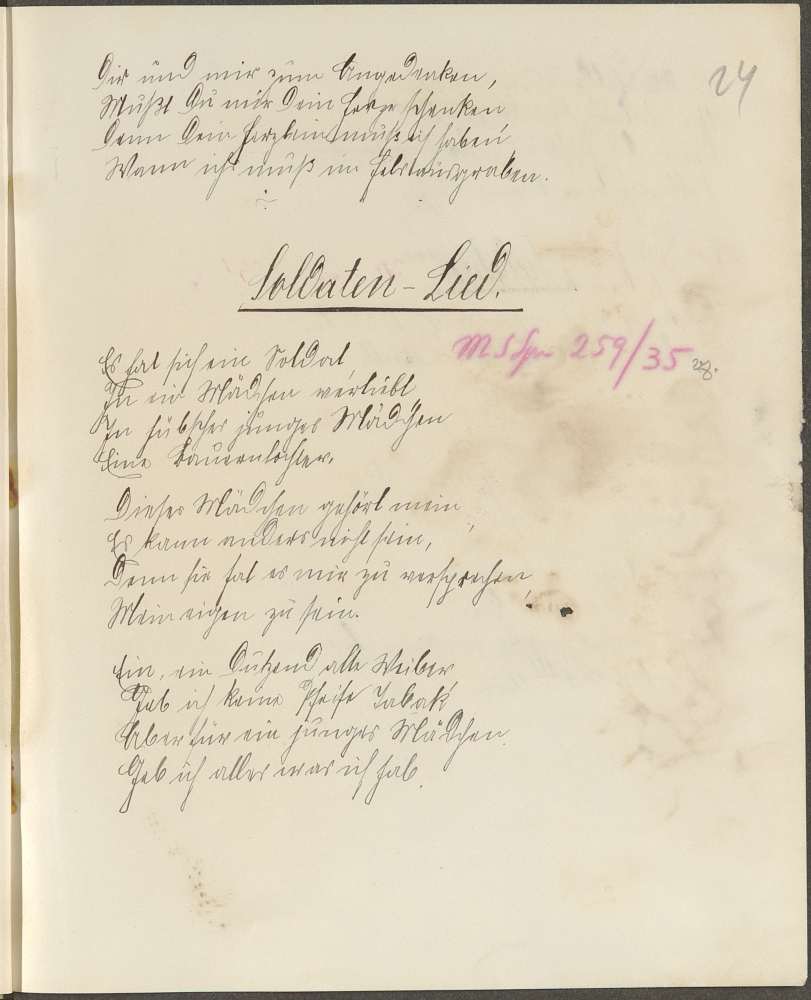 Dir und mir zum Angedenken,
24
Mußt Du mir Dein Herze schenken
Denn Dein Herzlein muß ich haben
Wann ichs muß im Fels ausgraben.
Soldaten-Lied.
Es hat sich ein Soldat
MS Spr 259/35
In ein Mädchen verliebt
In hübsches junges Mädchen
Eine Bauerntochter.
Dieses Mädchen gehört mein
Es kann anders nicht sein,
Denn sie hat es mir zu versprechen,
Mein eigen zu sein.
Für ein Dutzend alte Weiber
Geb ich keine Pfeife Tabak
Aber für ein junges Mädchen
Geb ich alles was ich hab.